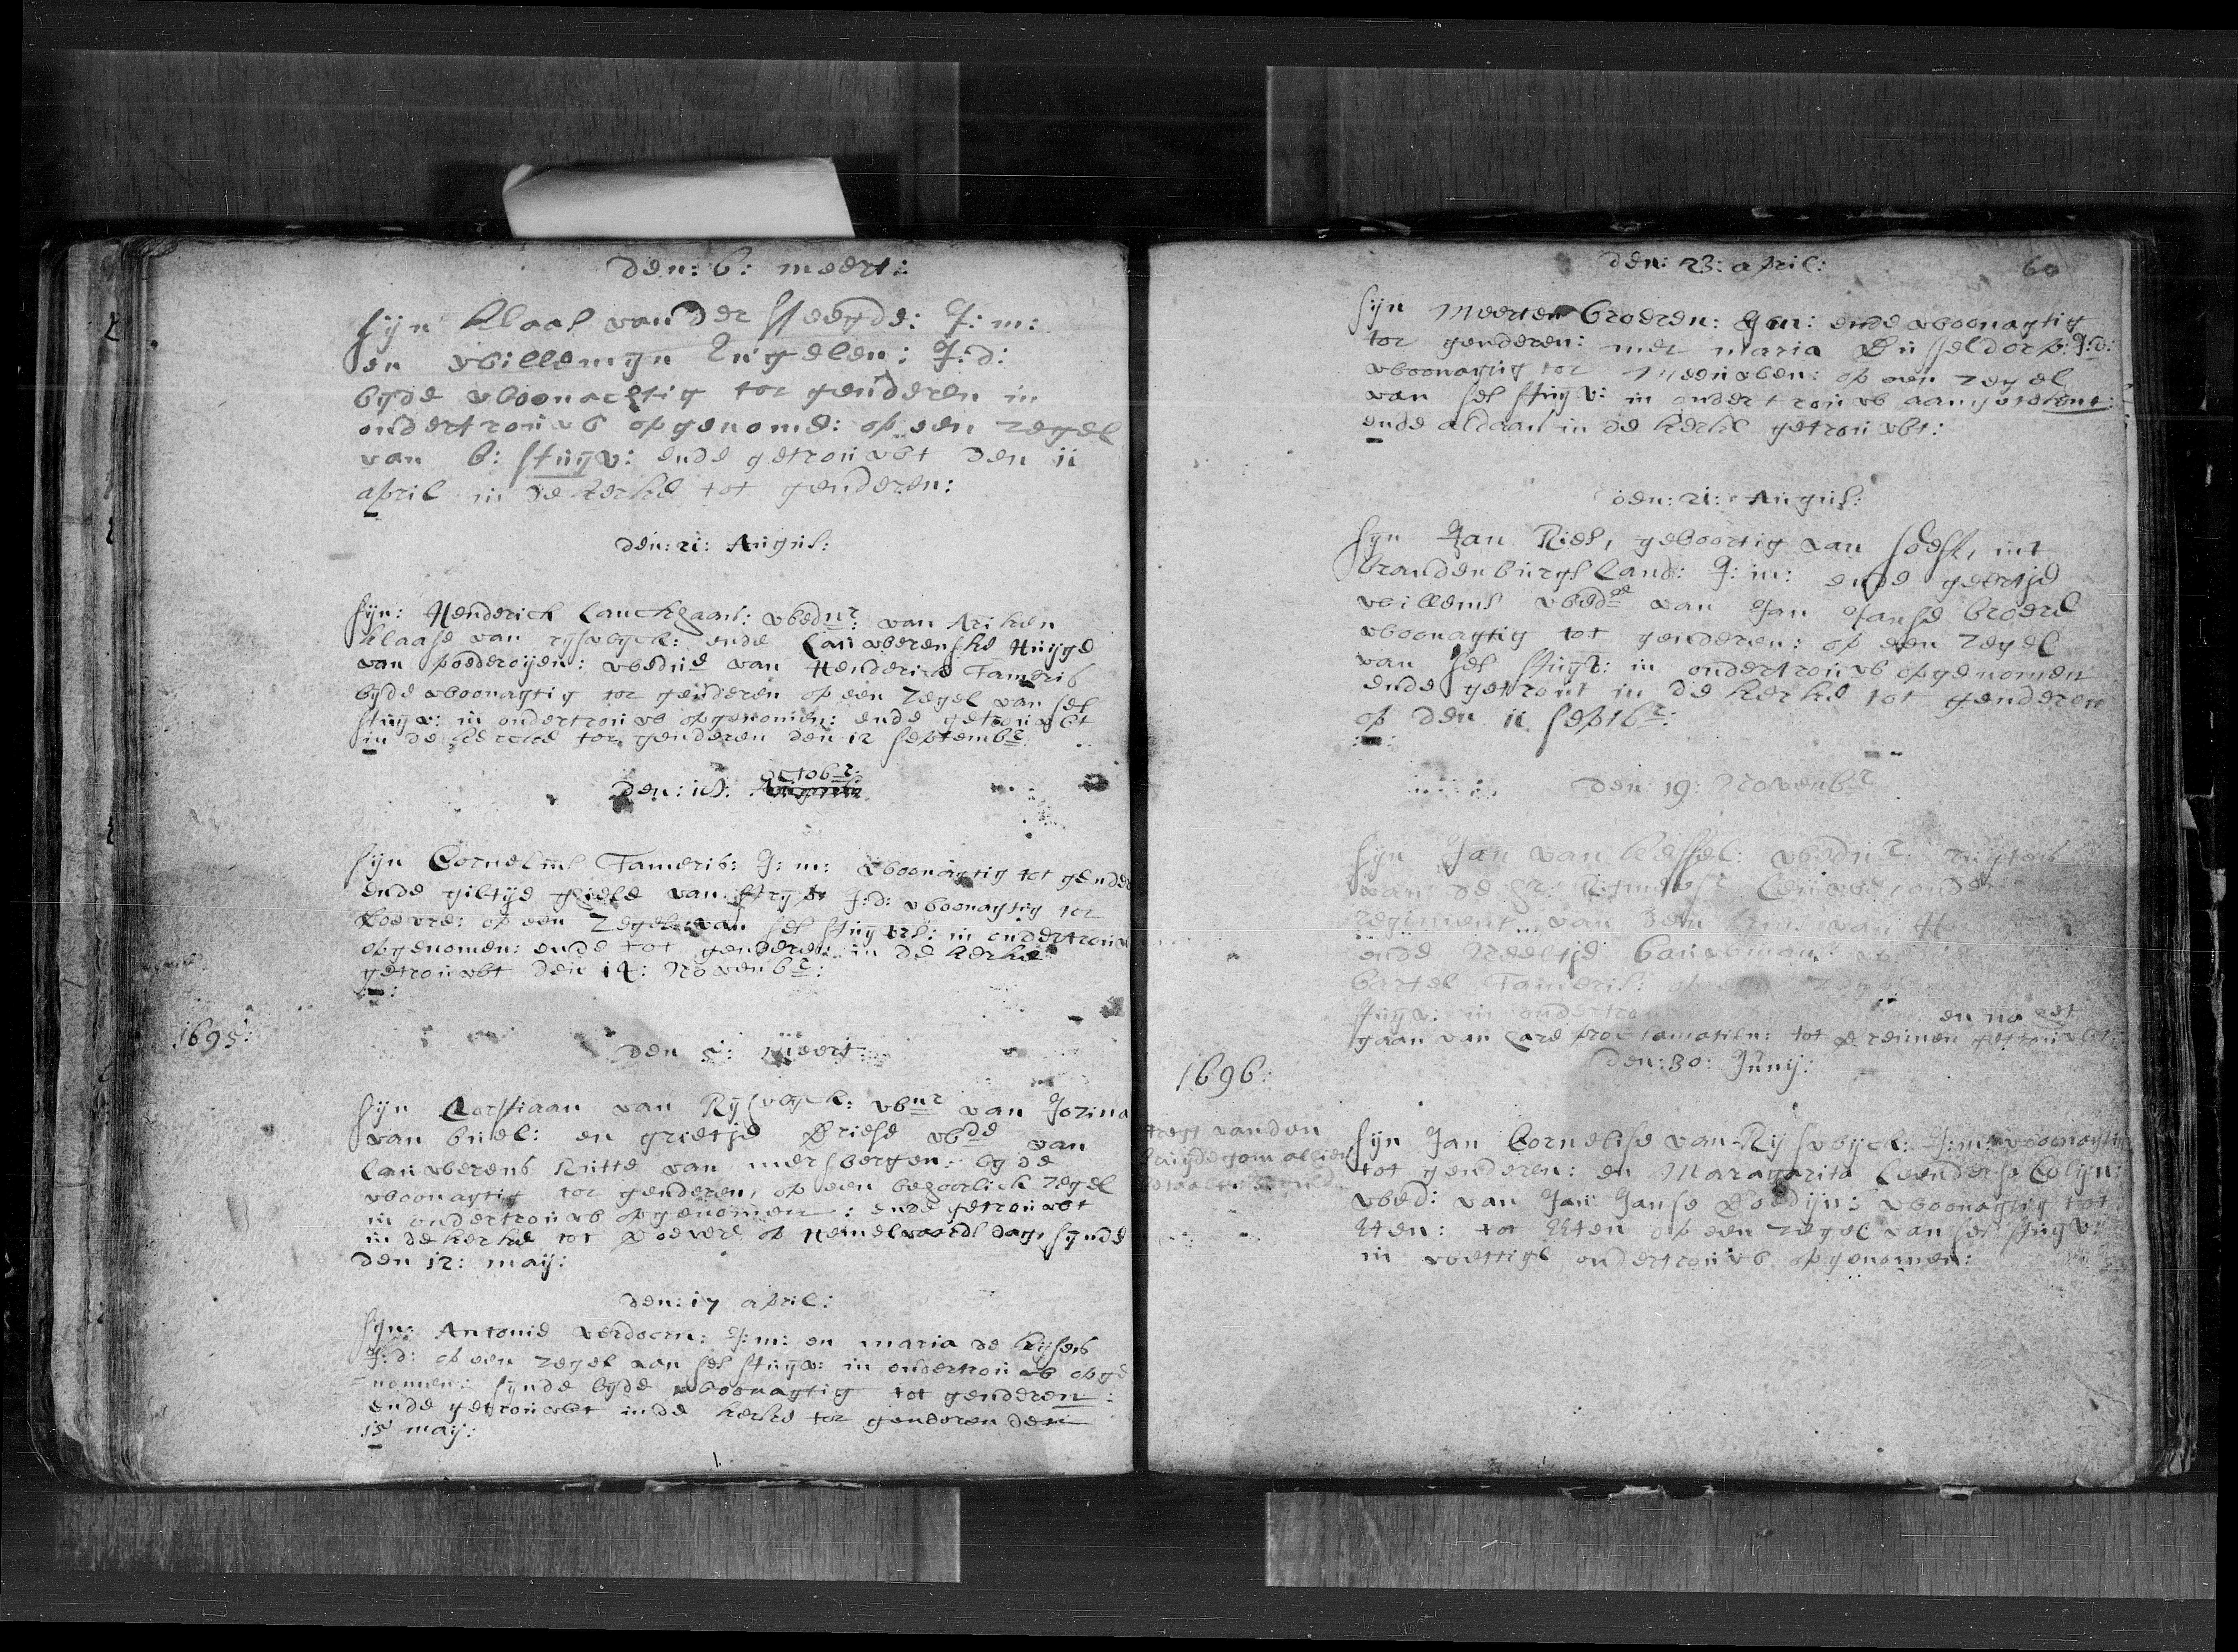 den: 6: meert:
sijn klaas van der steegde: J: m:
en willemijn Engelen: J: d:
byde woonachtig tot genderen in
ondertrouw opgenome: op een zegel
van 6: stuyv: ende getrouwt den 11
april in de kerke tot genderen:
den: 21: Augus:
sijn: Henderick wednr: van Ariken
klaase van ryswyck: ende Lauwerenske Huyge
van poederoijen: wedue van Henderick Tameris
byde woonagtig tot genderen op een zegel van ses
stuyv: in ondertrouw opgenomen: ende getrouwt
in de kercke tot genderen den 12 septembr
octobr:
den: 18:
sijn Cornelius Tameris: J: m: woonagtig tot gender
ende giltije van J: d: woonagtig tot
Doevre: op een zegel van ses stuyvrs: in ondertrouw
opgenomen: ende tot genderen in de kerke
getrouwt den 14: Novenbr:
1695:
den 5: Meert:
sijn Corstiaan van Rijswyck: wnr van Jozina
van buel: en grietje Driese wde van
Lauwerens Rutte van mersbergen: byde
woonagtig tot genderen, op een behoorlick zegel
in ondertrouw opgenomen: ende getrouwt
in de kerke tot Doevere op Hemelvaards dag, synde
den 12: maij:
den: 17 april:
sijn: Antonie verdoorn: J: m: en maria de kijsers
J: d: op een zegel van ses stuyv: in ondertrouw opge
=nomen: sijnde byde woonagtig tot genderen:
ende getrouwt inde kerke tot genderen den
15 maij:
den: 23: april:
60
sijn Meerten broeren: J m: ende woonagtig
tot genderen: met maria Dusseldorp: J: d:
woonagtig tot Meeuwen: op een zegel
van ses stuyv: in ondertrouw aangetekent:
ende aldaar in de kerke getrouwt:
den: 21: Augus:
sijn Jan Ries, geboortig van soest, int
brandenburgs land: J: m: ende geertje
willems wedde van Jan Janse broere
woonagtig tot genderen: op een zegel
van ses stuyv: in ondertrouw opgenomen
ende getrout in de kerke tot genderen
op den 11 septbr:
den: 19: Novenbr
sijn Jan van kessel: wednr: ruyter
van de hr: Ritmeestr onder
regiment van
ende Neeltje
bartel Tameris: op een zegel
stuyv: in ondertrou en na het
gaan van hare proclamatien: tot Dreunen getrouwt:
1696:
den: 30: Junij:
regt van den
bruydegom alhier
betaalt
sijn Jan Cornelise van Rijswyck: J: m: woonagtig
tot genderen: en Maragarita Leenderse Colijn:
wed: van Jan Janse Doedijns woonagtig tot
Eten: tot Eten op een zegel van ses stuyv:
in wettige ondertrouw opgenomen: